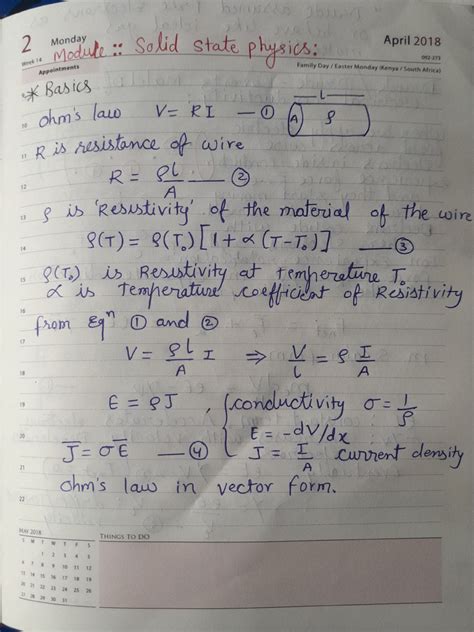 2 Monday April 2018
Week 14 092-273
Module :: Solid state physics:
Appointments Family Day / Easter Monday (Kenya / South Africa)
* Basics
ohm's law V = RI — ① l A ρ
R is resistance of wire
R = ρl/A — ②
ρ is 'Resistivity' of the material of the wire
ρ(T) = ρ(T₀) [1 + α (T-T₀)] — ③
ρ(T₀) is Resistivity at temperature T₀
α is Temperature coefficient of Resistivity
from Eqⁿ ① and ②
V = ρl/A I ⇒ V/l = ρ I/A
E = ρJ , { conductivity σ = 1/ρ
E = -dV/dx
J̅ = σE̅ — ④ J = I/A current density
ohm's law in vector form.
MAY 2018 THINGS TO DO
S M T W T F S
1 2 3 4 5
6 7 8 9 10 11 12
13 14 15 16 17 18 19
20 21 22 23 24 25 26
27 28 29 30 31